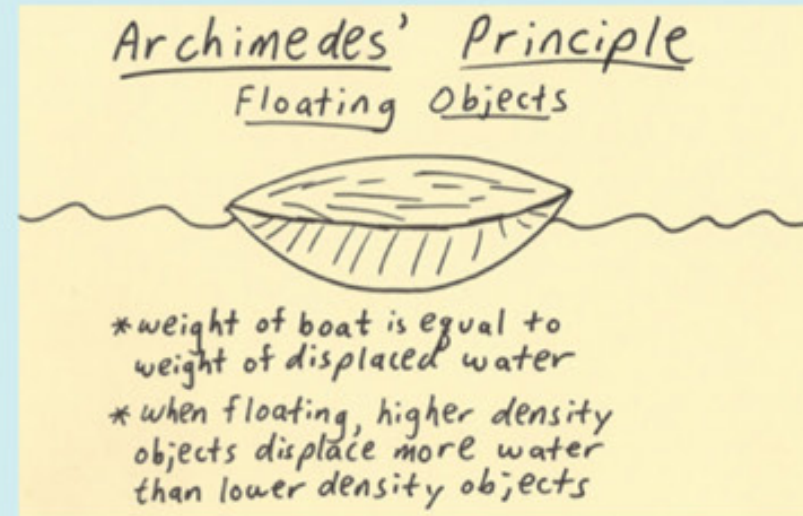 Archimedes' Principle
Floating Objects
*weight of boat is equal to
weight of displaced water
*when floating, higher density
objects displace more water
than lower density objects